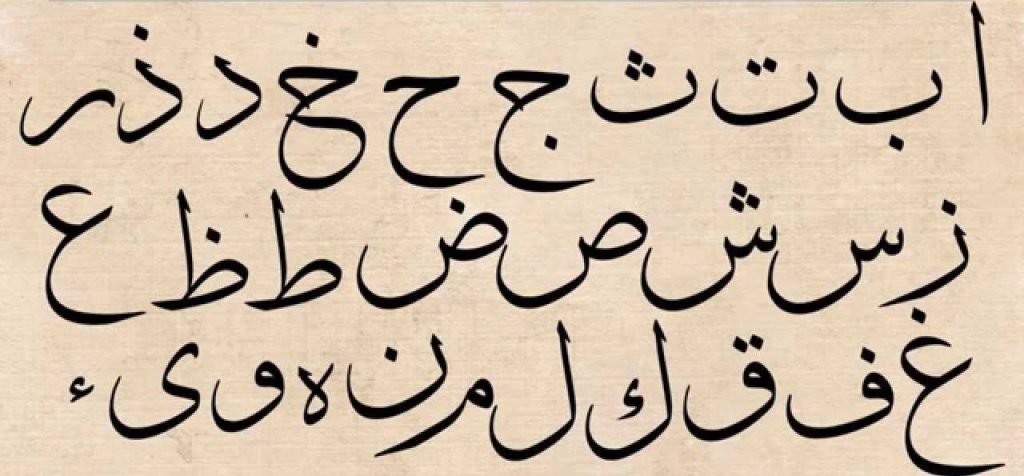 ا ب ت ث ج ح خ د ذ ر
ز س ش ص ض ط ظ ع
غ ف ق ك ل م ن ه و ى ء